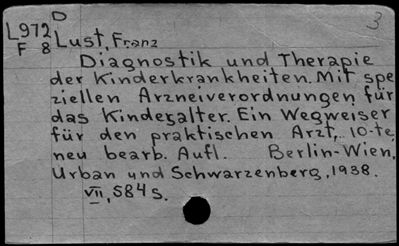 D
3
L972
F 8
Lust, Franz
Diagnostik und Therapie
der Kinderkrankheiten. Mit spe
ziellen Arzneiverordnungen für
das Kindesalter. Ein Wegweiser
für den praktischen Arzt, 10-te,
neu bearb. Aufl. Berlin-Wien,
Urban und Schwarzenberg, 1938.
VII, 584 s.